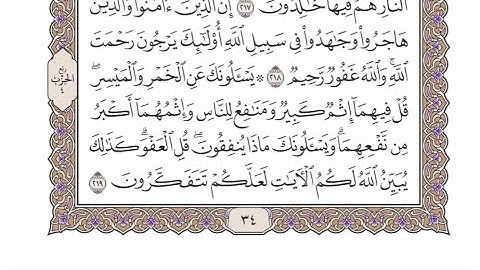 ٱلنَّارِ هُمْ فِيهَا خَٰلِدُونَ ٢١٧ إِنَّ ٱلَّذِينَ ءَامَنُوا۟ وَٱلَّذِينَ
هَاجَرُوا۟ وَجَٰهَدُوا۟ فِى سَبِيلِ ٱللَّهِ أُو۟لَٰٓئِكَ يَرْجُونَ رَحْمَتَ
ٱللَّهِ ۚ وَٱللَّهُ غَفُورٌ رَّحِيمٌ ٢١٨ ۞ يَسْـَٔلُونَكَ عَنِ ٱلْخَمْرِ وَٱلْمَيْسِرِ ۖ
قُلْ فِيهِمَآ إِثْمٌ كَبِيرٌ وَمَنَٰفِعُ لِلنَّاسِ وَإِثْمُهُمَآ أَكْبَرُ
مِن نَّفْعِهِمَا ۗ وَيَسْـَٔلُونَكَ مَاذَا يُنفِقُونَ قُلِ ٱلْعَفْوَ ۗ كَذَٰلِكَ
يُبَيِّنُ ٱللَّهُ لَكُمُ ٱلْءَايَٰتِ لَعَلَّكُمْ تَتَفَكَّرُونَ ٢١٩
ربع
الحزب
٤
٣٤